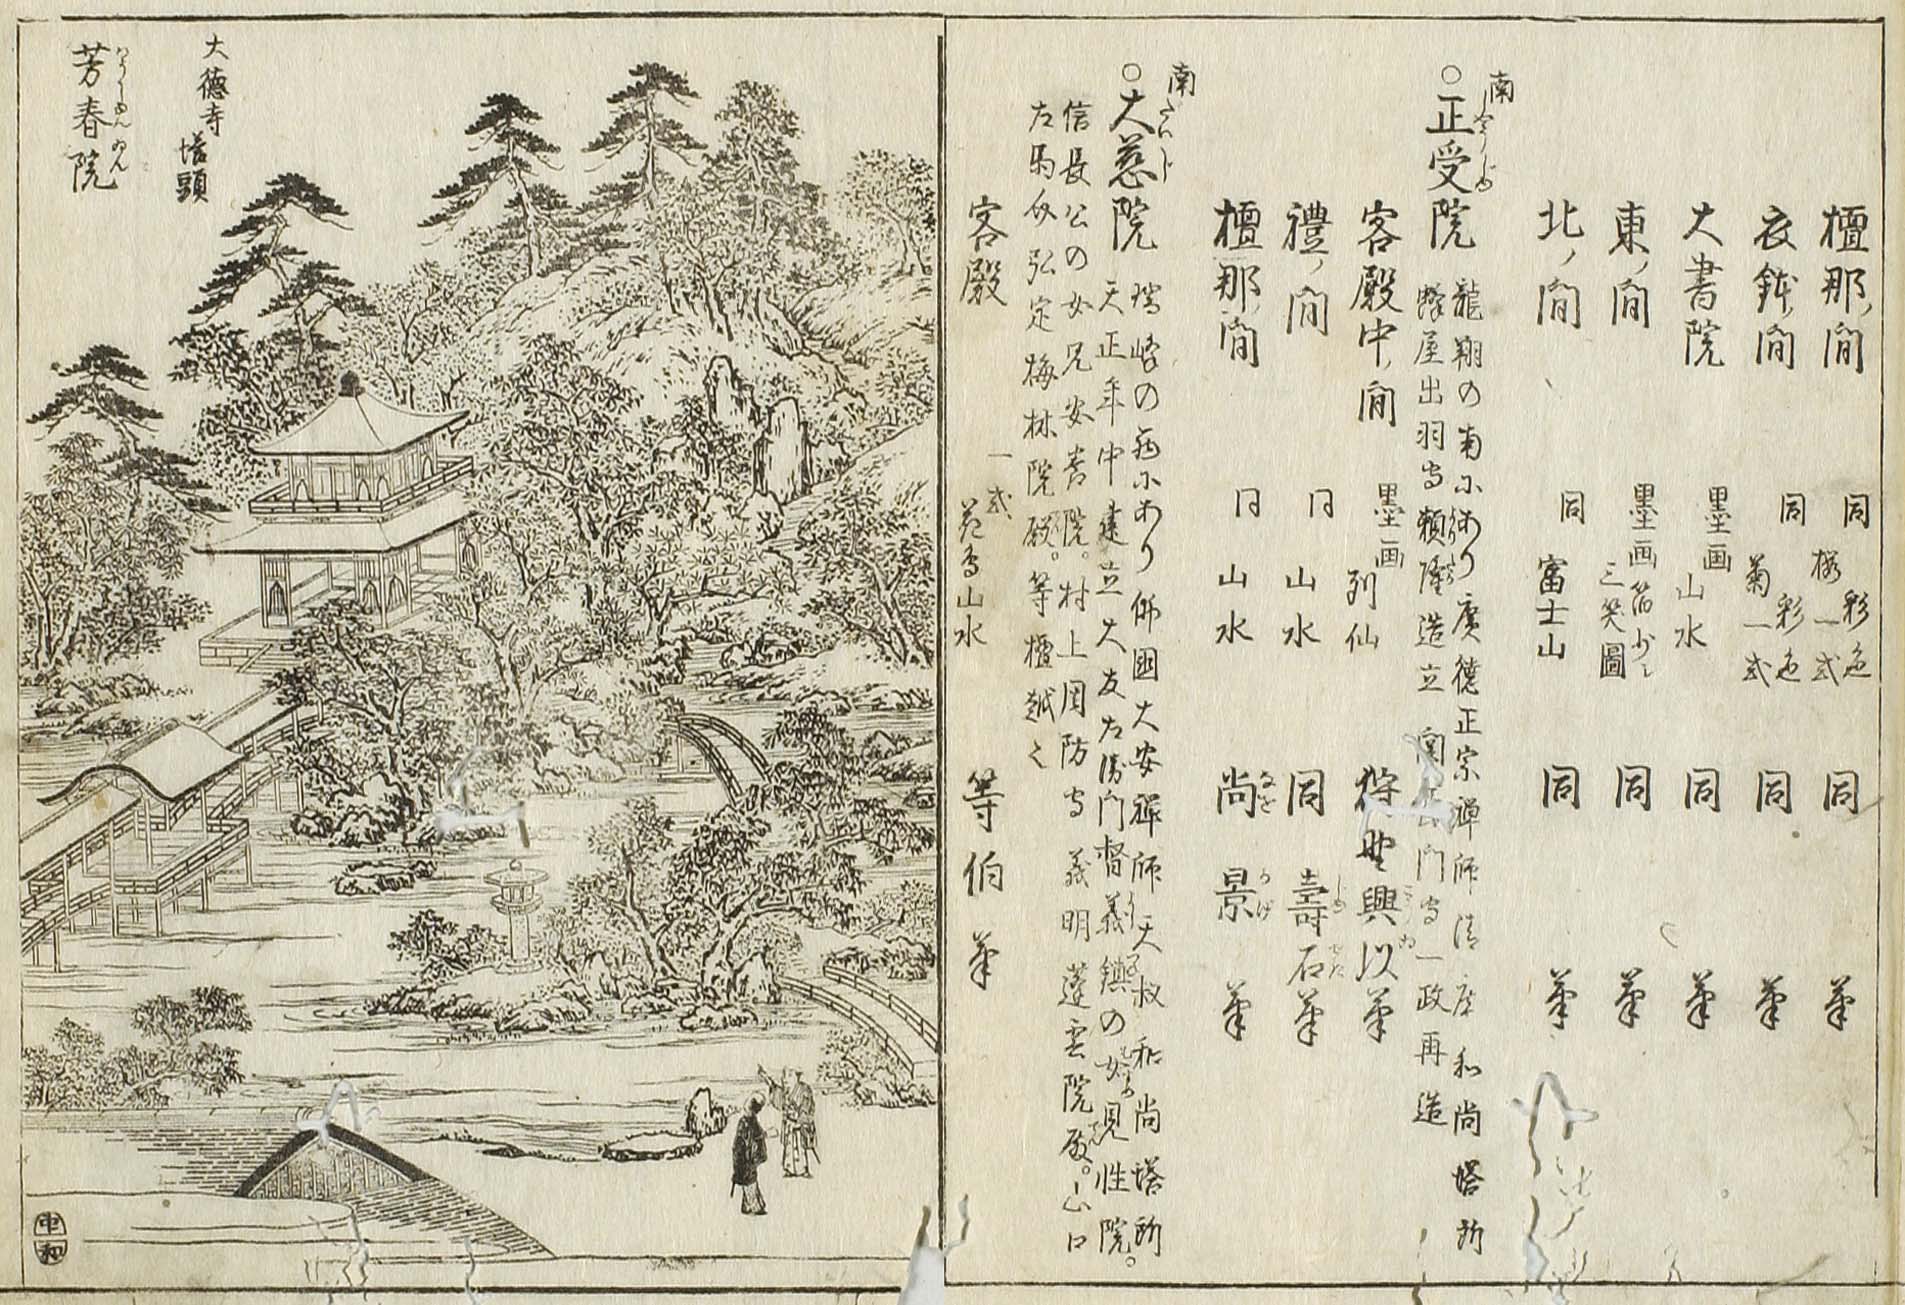 檀那ノ間 同 彩色 桜一式 同 筆
衣鉢ノ間 同 彩色 菊一式 同 筆
大書院 墨画 山水 同 筆
東ノ間 墨画 三笑圖 同 筆
北ノ間 同 富士山 同 筆
南
○正受院 龍翔の南にあり廣德正宗禅師清庵和尚塔所
蜂屋出羽守頼隆造立 関長門守一政再造
客殿中ノ間 墨画 列仙 狩野興以筆
禮ノ間 同 山水 同 壽石筆
檀那ノ間 同 山水 尚景 筆
南
○大慈院 瑞峰の西にあり佛國大安禅師天叔和尚塔所
天正年中建立大友左衛門督義鎮の女見性院。
信長公の女兄安養院。村上周防守義明蓬雲院殿。山口
左馬介弘定梅林院殿。等檀越々
客殿 一式 花鳥山水 等伯筆
大德寺
塔頭
芳春院
はうしゆんゐん
中和